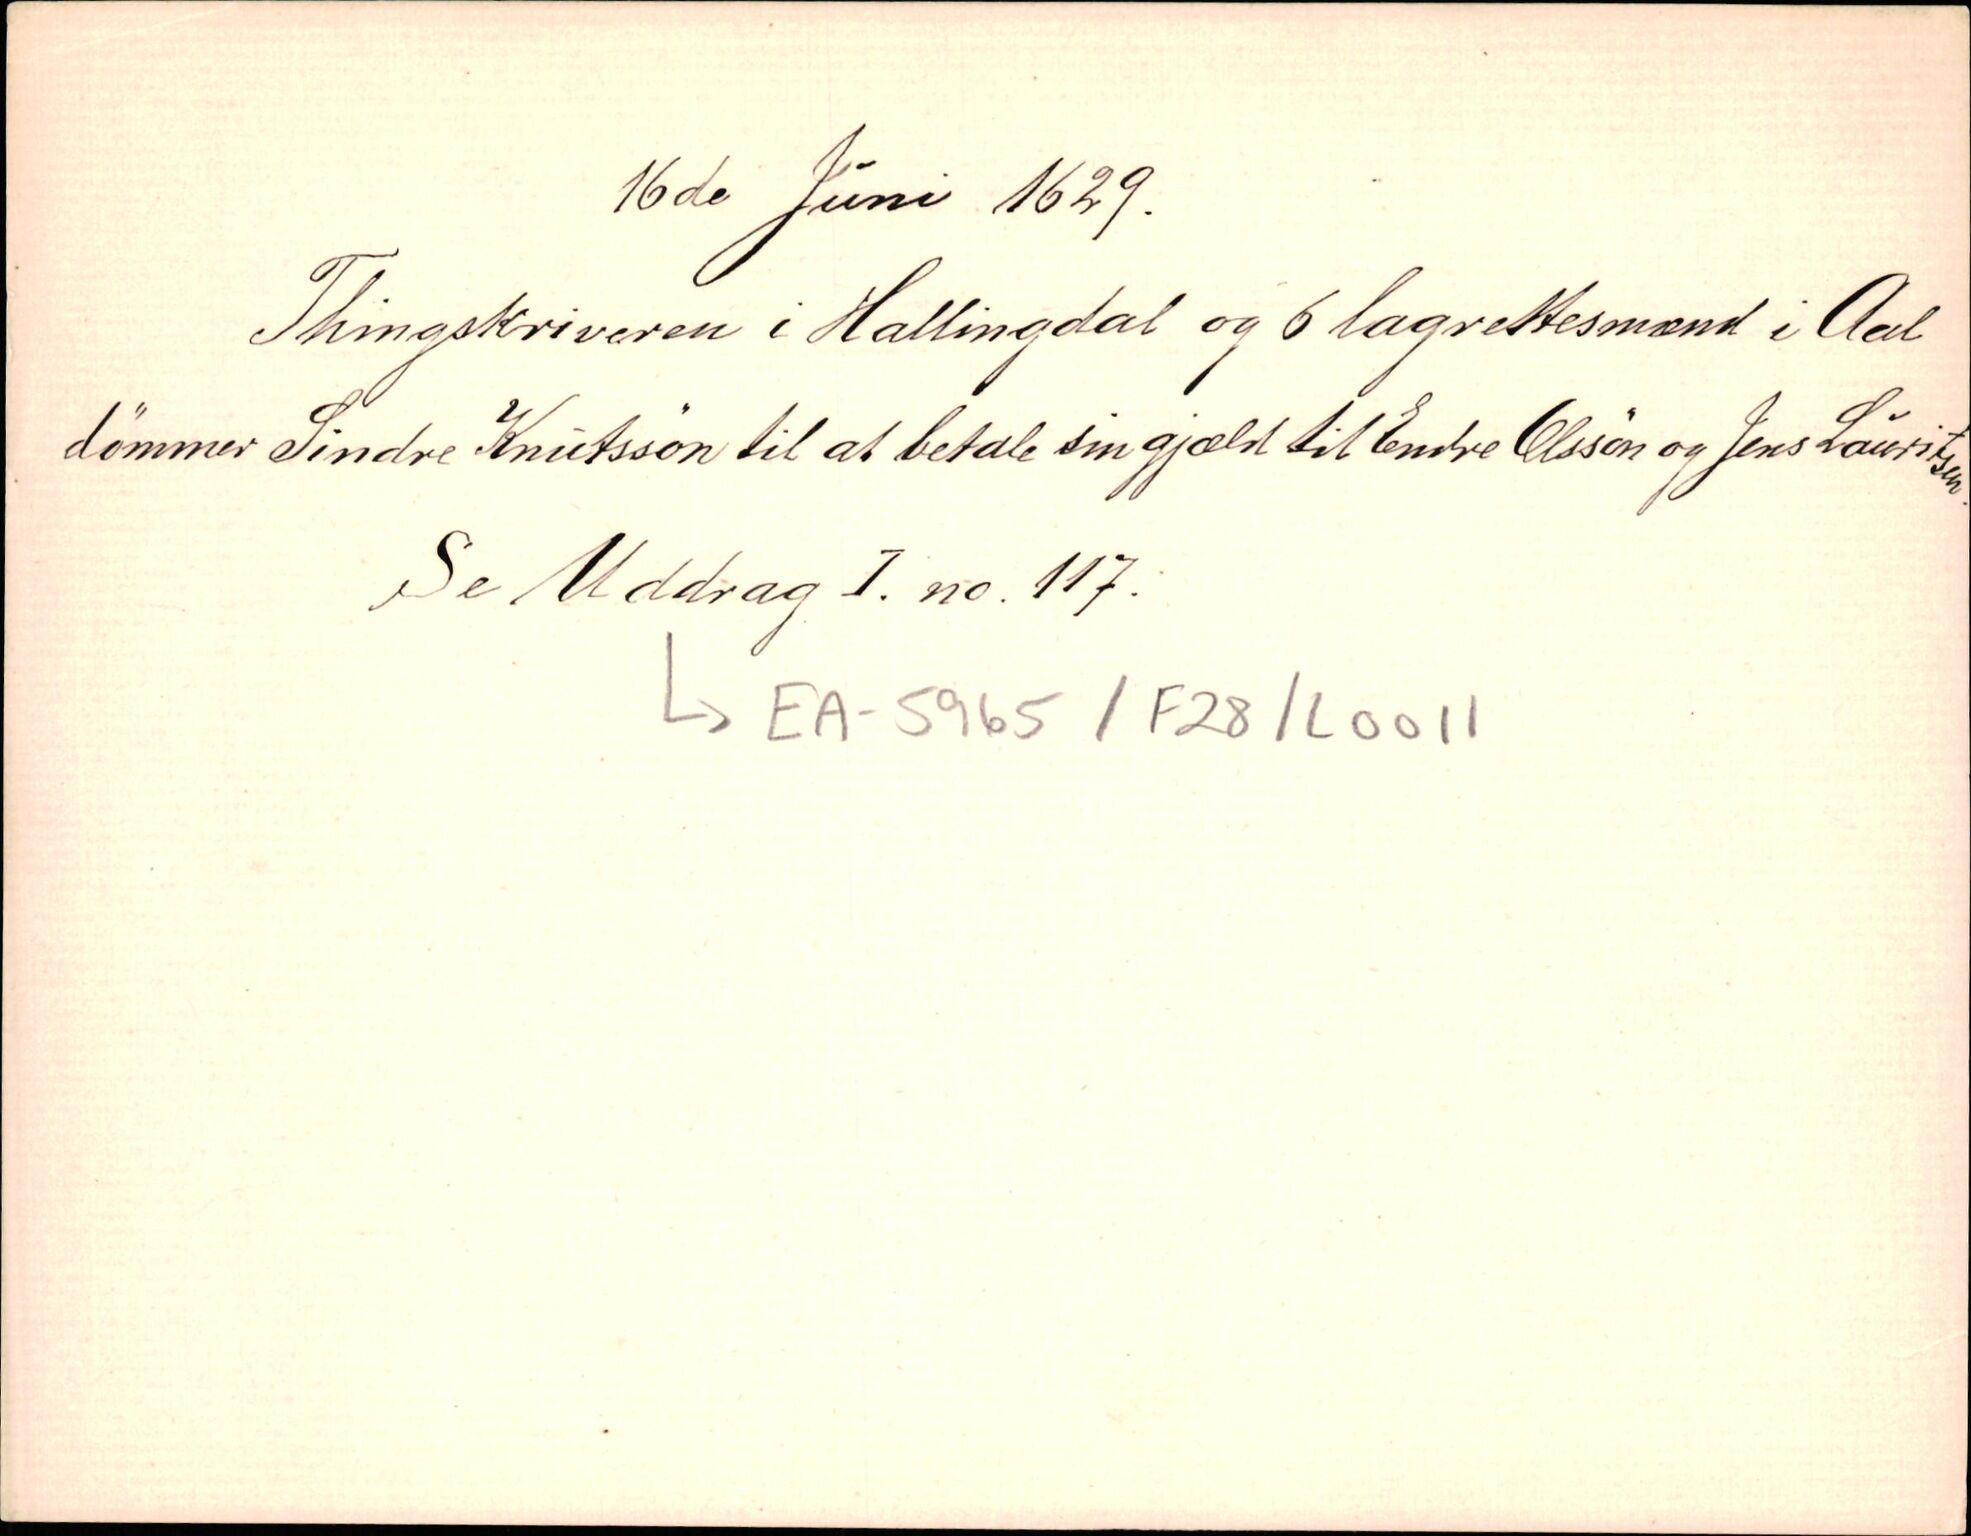 16de Juni 1629.
Thingskriveren i Hallingdal og 6 lagrettesmænd i Aal
dömmer Sindre Knutssön til at betale sin gjæld til Endre Olssön og Jens Lauritsen.
Se Uddrag I. no. 117.
↳ EA-5965 / F28 / L0011